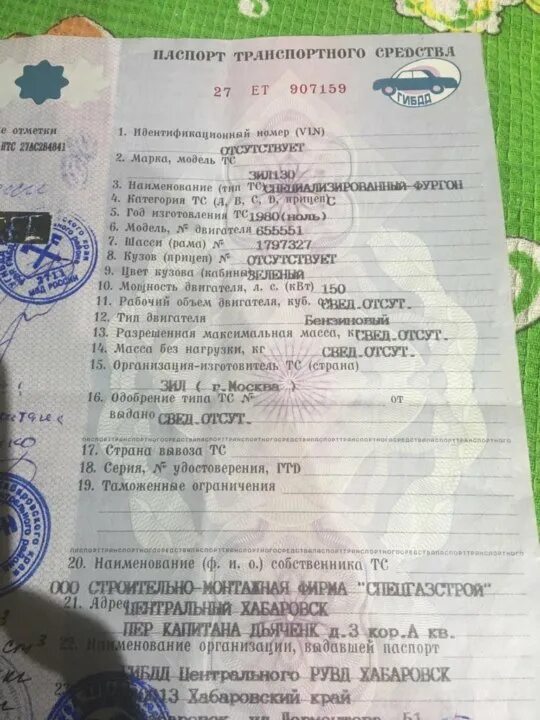 ПАСПОРТ ТРАНСПОРТНОГО СРЕДСТВА
27 ЕТ 907159
ГИБДД
отметки
ПТС 27АС284041
1. Идентификационный номер (VIN)
ОТСУТСТВУЕТ
2. Марка, модель ТС
ЗИЛ130
3. Наименование (тип ТС) СПЕЦИАЛИЗИРОВАННЫЙ ФУРГОН
4. Категория ТС (А, В, С, D, прицеп) С
5. Год изготовления ТС 1980(ноль)
6. Модель, № двигателя 655551
7. Шасси (рама) № 1797327
8. Кузов (прицеп) № ОТСУТСТВУЕТ
9. Цвет кузова (кабины) ЗЕЛЕНЫЙ
10. Мощность двигателя, л. с. (кВт) 150
11. Рабочий объем двигателя, куб. СВЕД.ОТСУТ.
12. Тип двигателя Бензиновый
13. Разрешенная максимальная масса, кг СВЕД.ОТСУТ.
14. Масса без нагрузки, кг СВЕД.ОТСУТ.
15. Организация-изготовитель ТС (страна)
ЗИЛ ( г.Москва )
16. Одобрение типа ТС № от
выдано СВЕД.ОТСУТ.
17. Страна вывоза ТС
18. Серия, № удостоверения, ГТD
19. Таможенные ограничения
20. Наименование (ф. и. о.) собственника ТС
ООО СТРОИТЕЛЬНО-МОНТАЖНАЯ ФИРМА "СПЕЦГАЗСТРОЙ"
21. Адрес ЦЕНТРАЛЬНЫЙ ХАБАРОВСК
ПЕР КАПИТАНА ДЬЯЧЕНК д.3 кор.А кв.
22. Наименование организации, выдавшей паспорт
ГИБДД Центрального РУВД ХАБАРОВСК
Хабаровский край